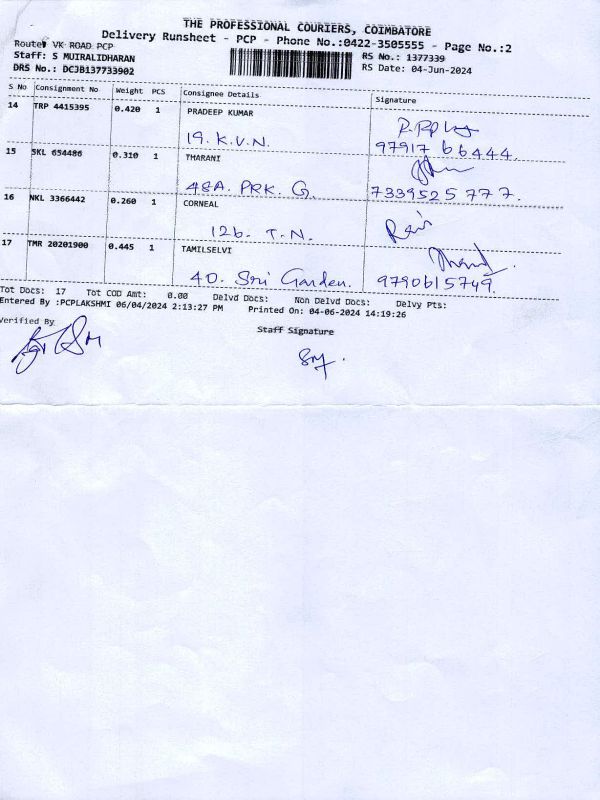 THE PROFESSIONAL COURIERS, COIMBATORE
Delivery Runsheet - PCP - Phone No.:0422-3505555 - Page No.:2
Route: VK ROAD PCP
Staff: S MUIRALIDHARAN
RS No.: 1377339
DRS No.: DCJB137733902
RS Date: 04-Jun-2024
S No Consignment No Weight PCS Consignee Details Signature
14 TRP 4415395 0.420 1 PRADEEP KUMAR
19. K.V.N. 97917 66444.
15 SKL 654486 0.310 1 THARANI
48A. PRK. G. 7339525 777.
16 NKL 3366442 0.260 1 CORNEAL
126. T.N. Ravi
17 TMR 20201900 0.445 1 TAMILSELVI
40. Sri Garden. 9790615749.
Tot Docs: 17 Tot COD Amt: 0.00 Delvd Docs: Non Delvd Docs: Delvy Pts:
Entered By :PCPLAKSHMI 06/04/2024 2:13:27 PM Printed On: 04-06-2024 14:19:26
Verified By
Staff Signature